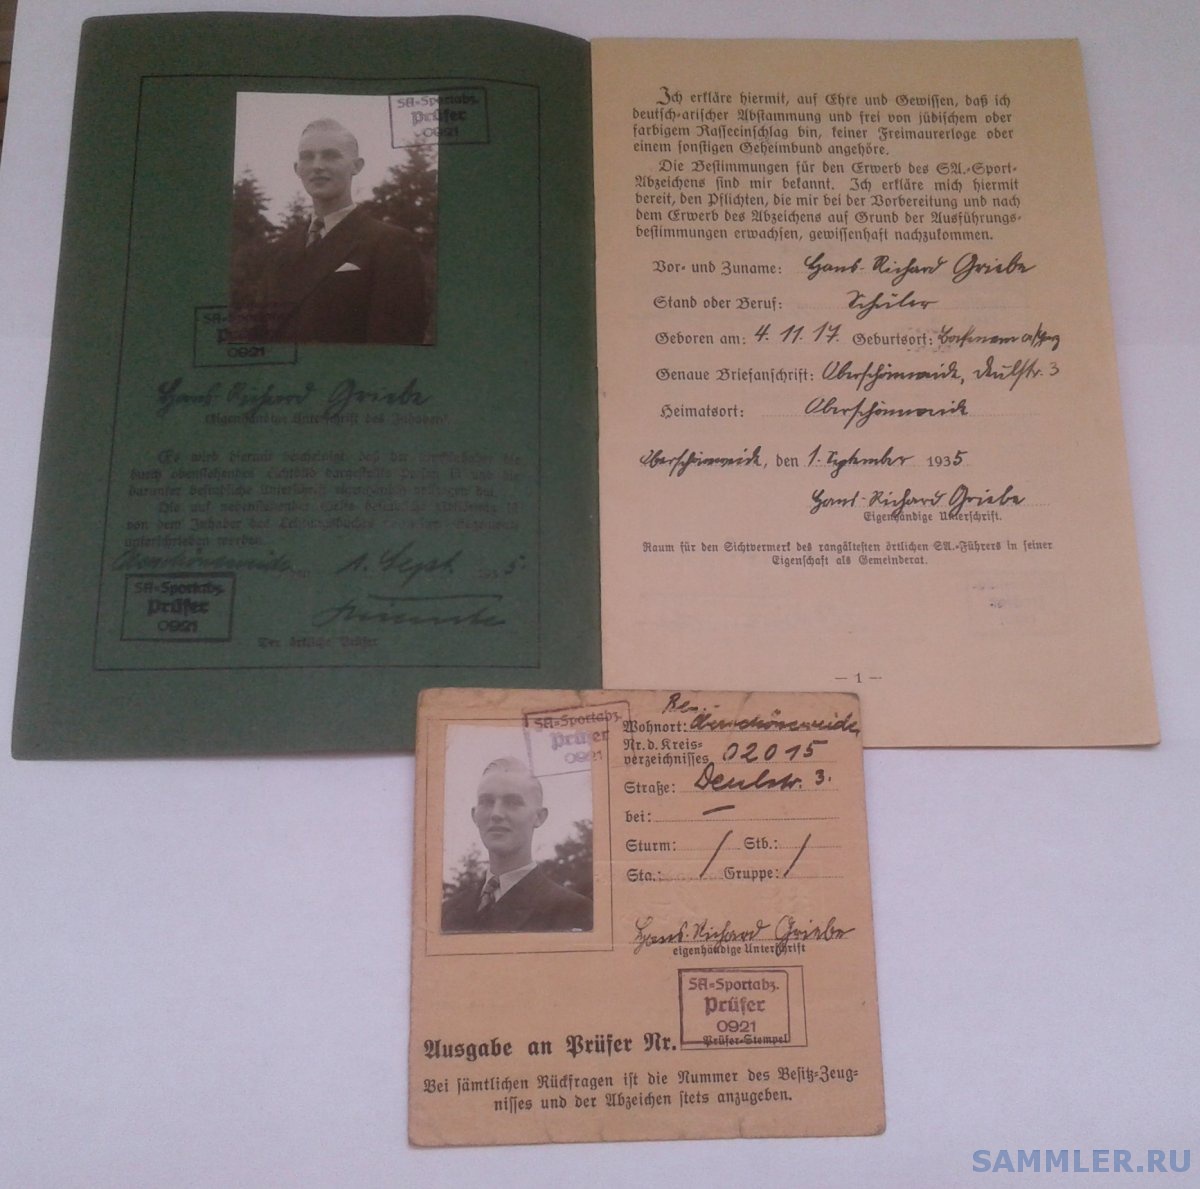 SA-Sportabz.
Prüfer
0921
SA-Sportabz.
Prüfer
0921
Hans-Richard Griebe
Eigenhändige Unterschrift des Inhabers
Es wird hiermit bescheinigt, daß der
durch obenstehendes Lichtbild dargestellte Person ist und die
darunter befindliche Unterschrift eigenhändig vollzogen hat.
von dem Inhaber des
unterschrieben worden.
Oberschöneweide, den 1. Sept. 1935
SA-Sportabz.
Prüfer
0921
Der örtliche Prüfer
Ich erkläre hiermit, auf Ehre und Gewissen, daß ich
deutsch-arischer Abstammung und frei von jüdischem oder
farbigem Rasseeinschlag bin, keiner Freimaurerloge oder
einem sonstigen Geheimbund angehöre.
Die Bestimmungen für den Erwerb des SA.-Sport-
Abzeichens sind mir bekannt. Ich erkläre mich hiermit
bereit, den Pflichten, die mir bei der Vorbereitung und nach
dem Erwerb des Abzeichens auf Grund der Ausführungs-
bestimmungen erwachsen, gewissenhaft nachzukommen.
Vor- und Zuname: Hans-Richard Griebe
Stand oder Beruf: Schüler
Geboren am: 4. 11. 17. Geburtsort:
Genaue Briefanschrift: Oberschöneweide, Deulstr. 3
Heimatsort: Oberschöneweide
Oberschöneweide, den 1. September 1935
Hans-Richard Griebe
Eigenhändige Unterschrift.
Raum für den Sichtvermerk des rangältesten örtlichen SA.-Führers in seiner
Eigenschaft als Gemeinderat.
— 1 —
SA-Sportabz.
Prüfer
0921
Wohnort: Oberschöneweide
Nr. d. Kreis-
verzeichnisses 02015
Straße: Deulstr. 3.
bei: —
Sturm: / Stb.: /
Sta.: / Gruppe: /
Hans-Richard Griebe
eigenhändige Unterschrift
SA-Sportabz.
Prüfer
0921
Prüfer-Stempel
Ausgabe an Prüfer Nr.
Bei sämtlichen Rückfragen ist die Nummer des Besitz-Zeug-
nisses und der Abzeichen stets anzugeben.
SAMMLER.RU